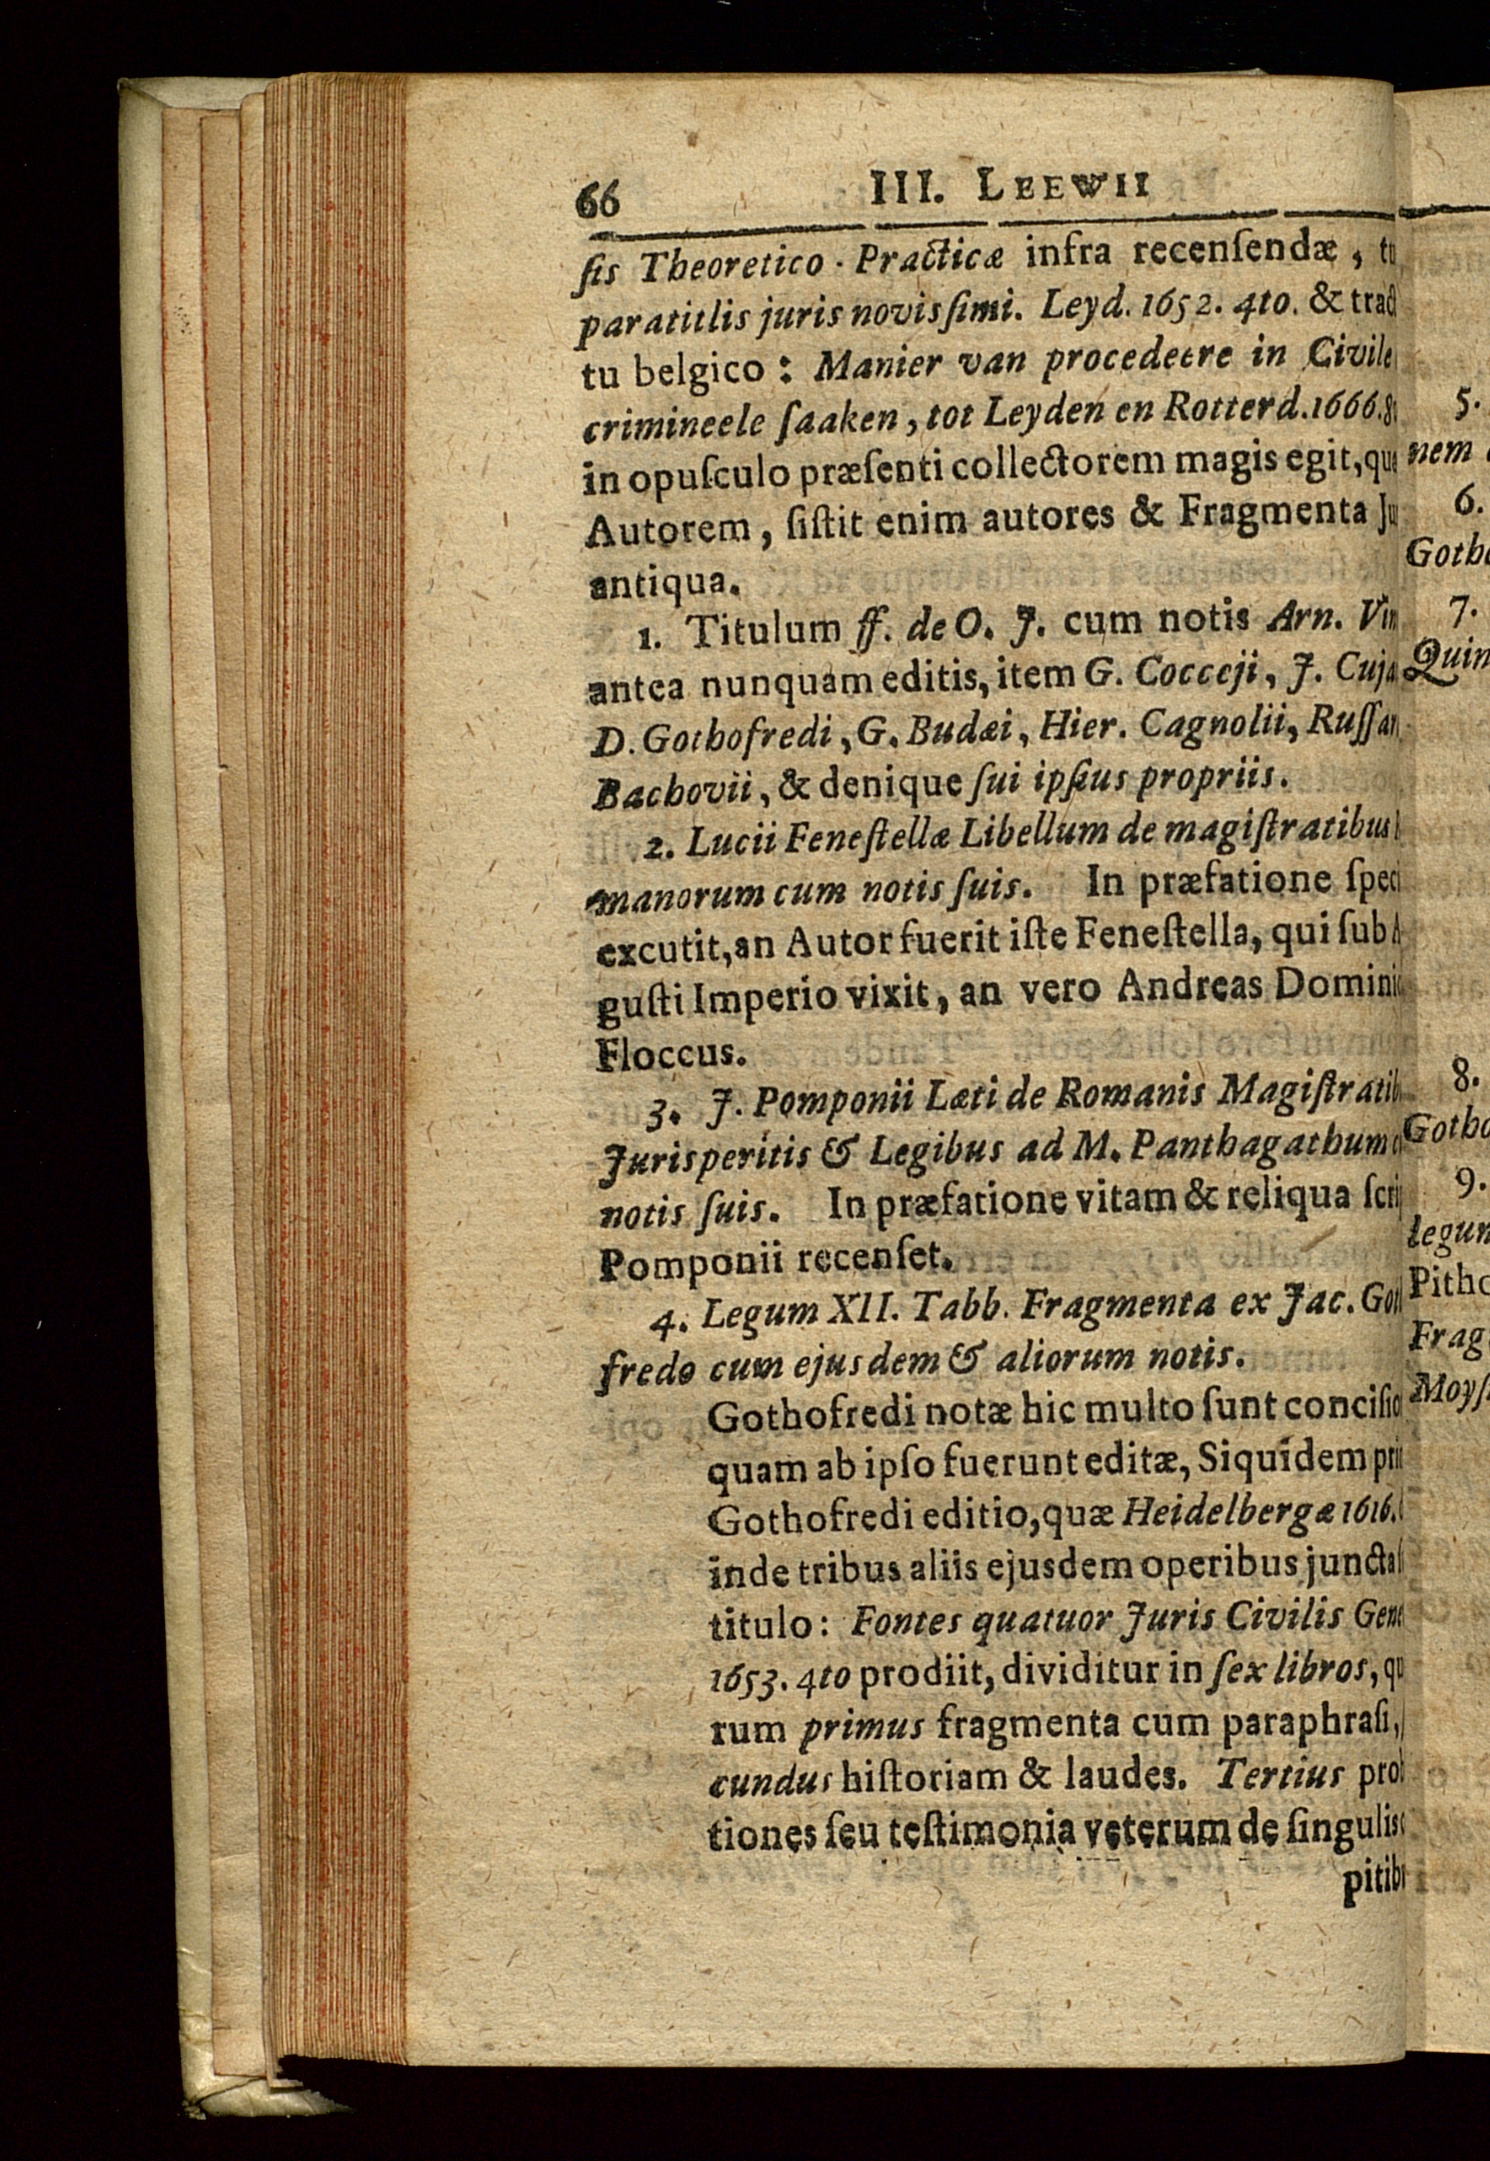 66 III. LEEWII
ſis Theoretico - Practicæ infra recenſendæ,
paratitlis juris novisſimi. Leyd. 1652. 4to. &
tu belgico: Manier van procedeere in
crimineele ſaaken, tot Leyden en Rotterd. 1666.
in opuſculo præſenti collectorem magis egit,
Autorem, ſiſtit enim autores & Fragmenta
antiqua.
1. Titulum ff. de O. J. cum notis Arn.
antea nunquam editis, item G. Cocceji, J.
D. Gothofredi, G. Budæi, Hier. Cagnolii,
Bachovii, & denique ſui ipſius propriis.
2. Lucii Feneſtellæ Libellum de magiſtratibus
manorum cum notis ſuis. In præfatione
excutit, an Autor fuerit iſte Feneſtella, qui ſub
guſti Imperio vixit, an vero Andreas
Floccus.
3. J. Pomponii Læti de Romanis
Jurisperitis & Legibus ad M. Panthagathum
notis ſuis. In præfatione vitam & reliqua
Pomponii recenſet.
4. Legum XII. Tabb. Fragmenta ex Jac.
fredo cum ejusdem & aliorum notis.
Gothofredi notæ hic multo ſunt
quam ab ipſo fuerunt editæ, Siquidem
Gothofredi editio, quæ Heidelbergæ 1616.
inde tribus aliis ejusdem operibus
titulo: Fontes quatuor Juris Civilis
1653. 4to prodiit, dividitur in ſex libros,
rum primus fragmenta cum paraphraſi,
cundus hiſtoriam & laudes. Tertius
tiones ſeu teſtimonia veterum de ſingulis
5.
nem
6.
7.
8.
9.